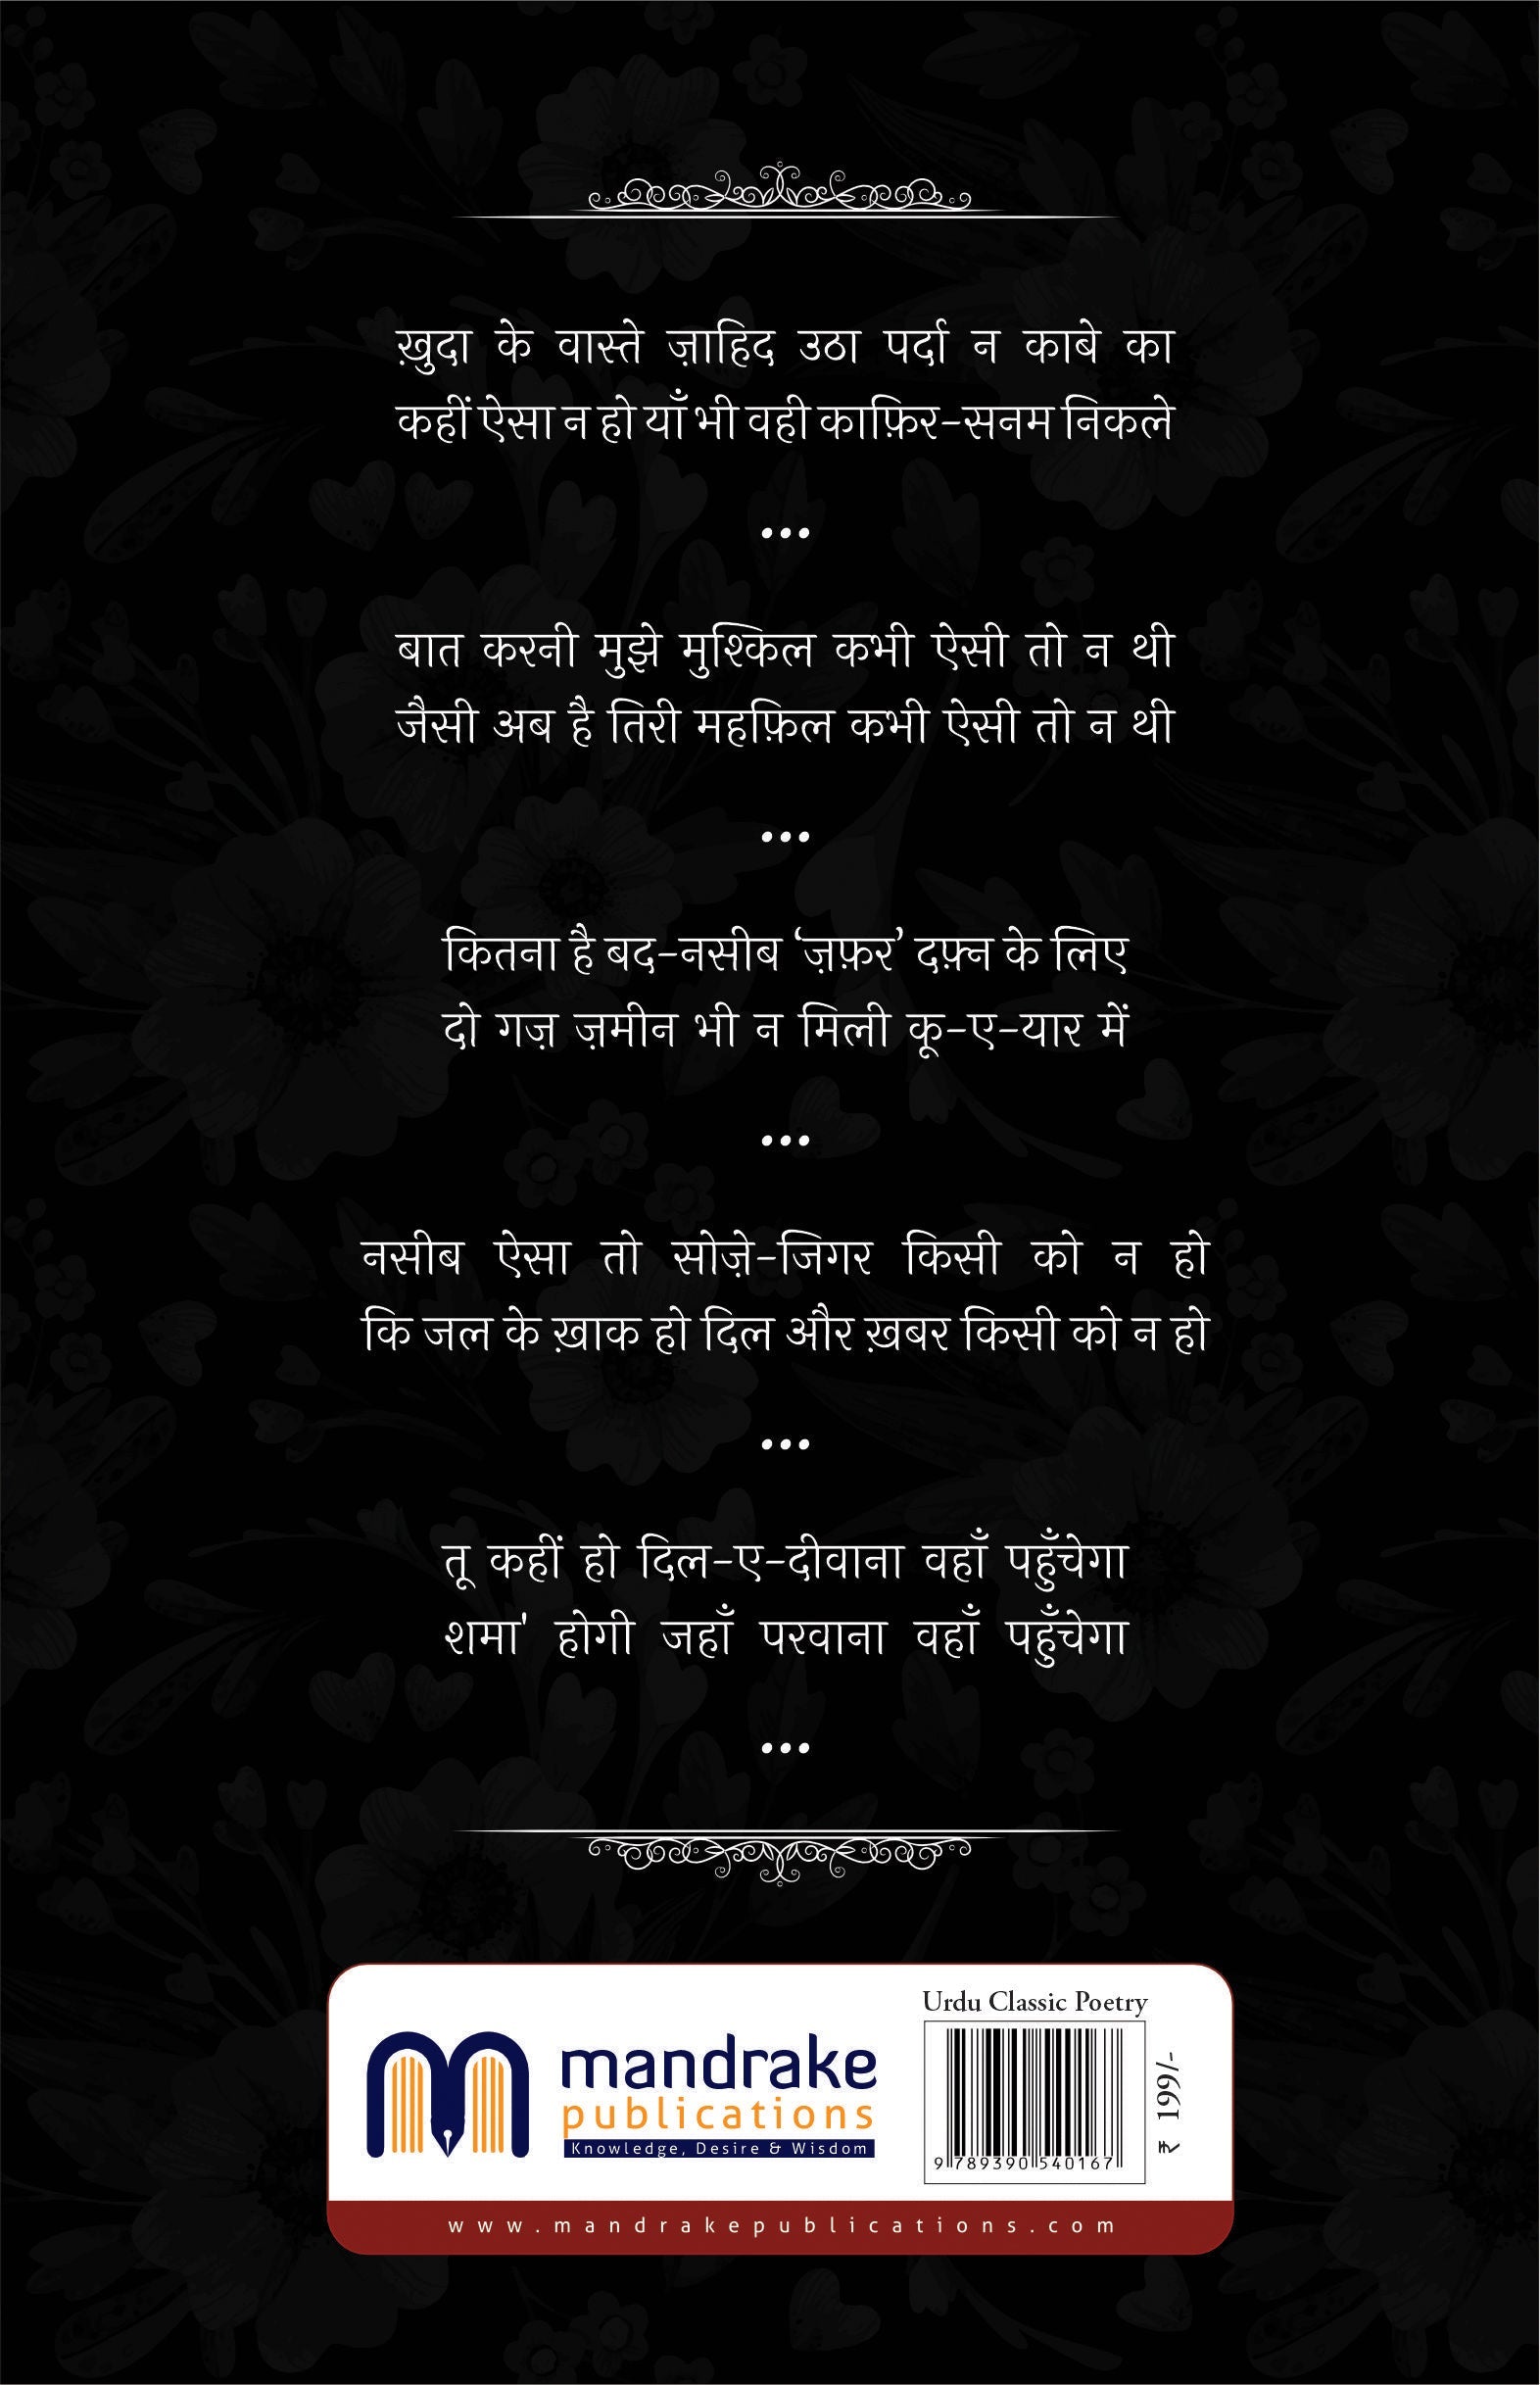 ख़ुदा के वास्ते ज़ाहिद उठा पर्दा न काबे का
कहीं ऐसा न हो याँ भी वही काफ़िर-सनम निकले
•••
बात करनी मुझे मुश्किल कभी ऐसी तो न थी
जैसी अब है तिरी महफ़िल कभी ऐसी तो न थी
•••
कितना है बद-नसीब ‘ज़फ़र’ दफ़्न के लिए
दो गज़ ज़मीन भी न मिली कू-ए-यार में
•••
नसीब ऐसा तो सोज़े-जिगर किसी को न हो
कि जल के ख़ाक हो दिल और ख़बर किसी को न हो
•••
तू कहीं हो दिल-ए-दीवाना वहाँ पहुँचेगा
शमा' होगी जहाँ परवाना वहाँ पहुँचेगा
•••
mandrake
publications
Knowledge, Desire & Wisdom
Urdu Classic Poetry
9 789390 540167
₹ 199/-
www.mandrakepublications.com